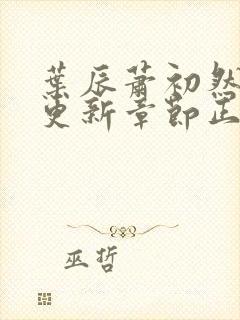 葉辰蕭初然
更新章節正
巫哲